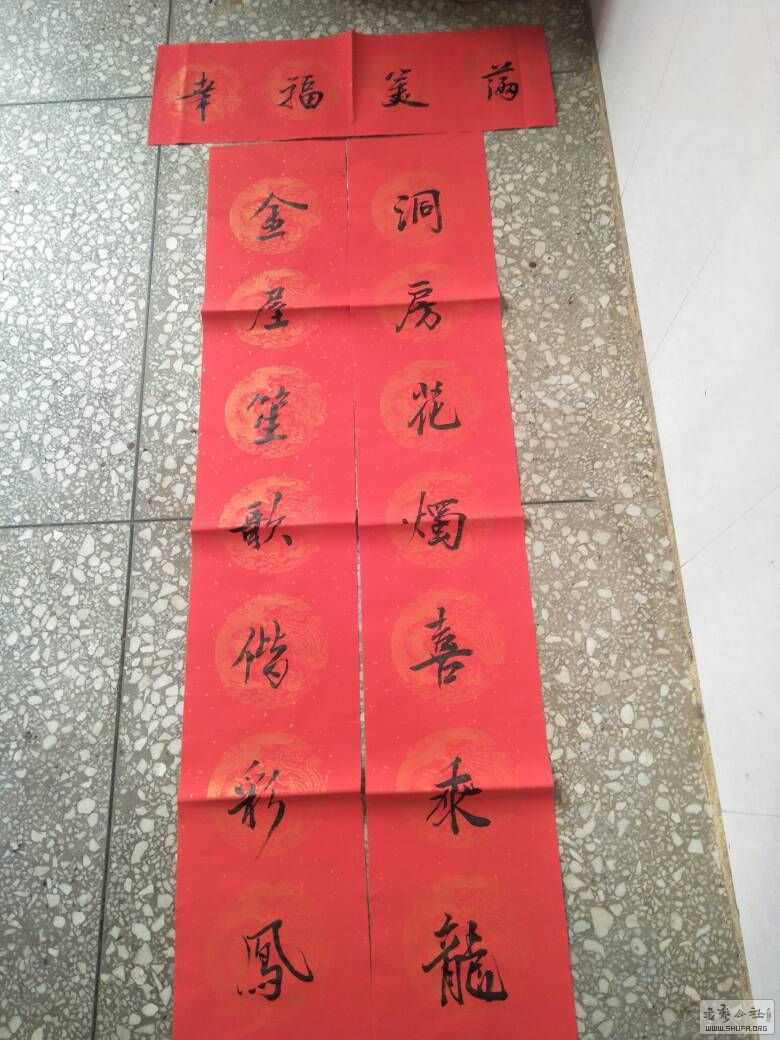 幸福美满
洞房花燭喜乘龍
金屋笙歌偕彩鳳
书艺公社
WWW.SHUFA.ORG